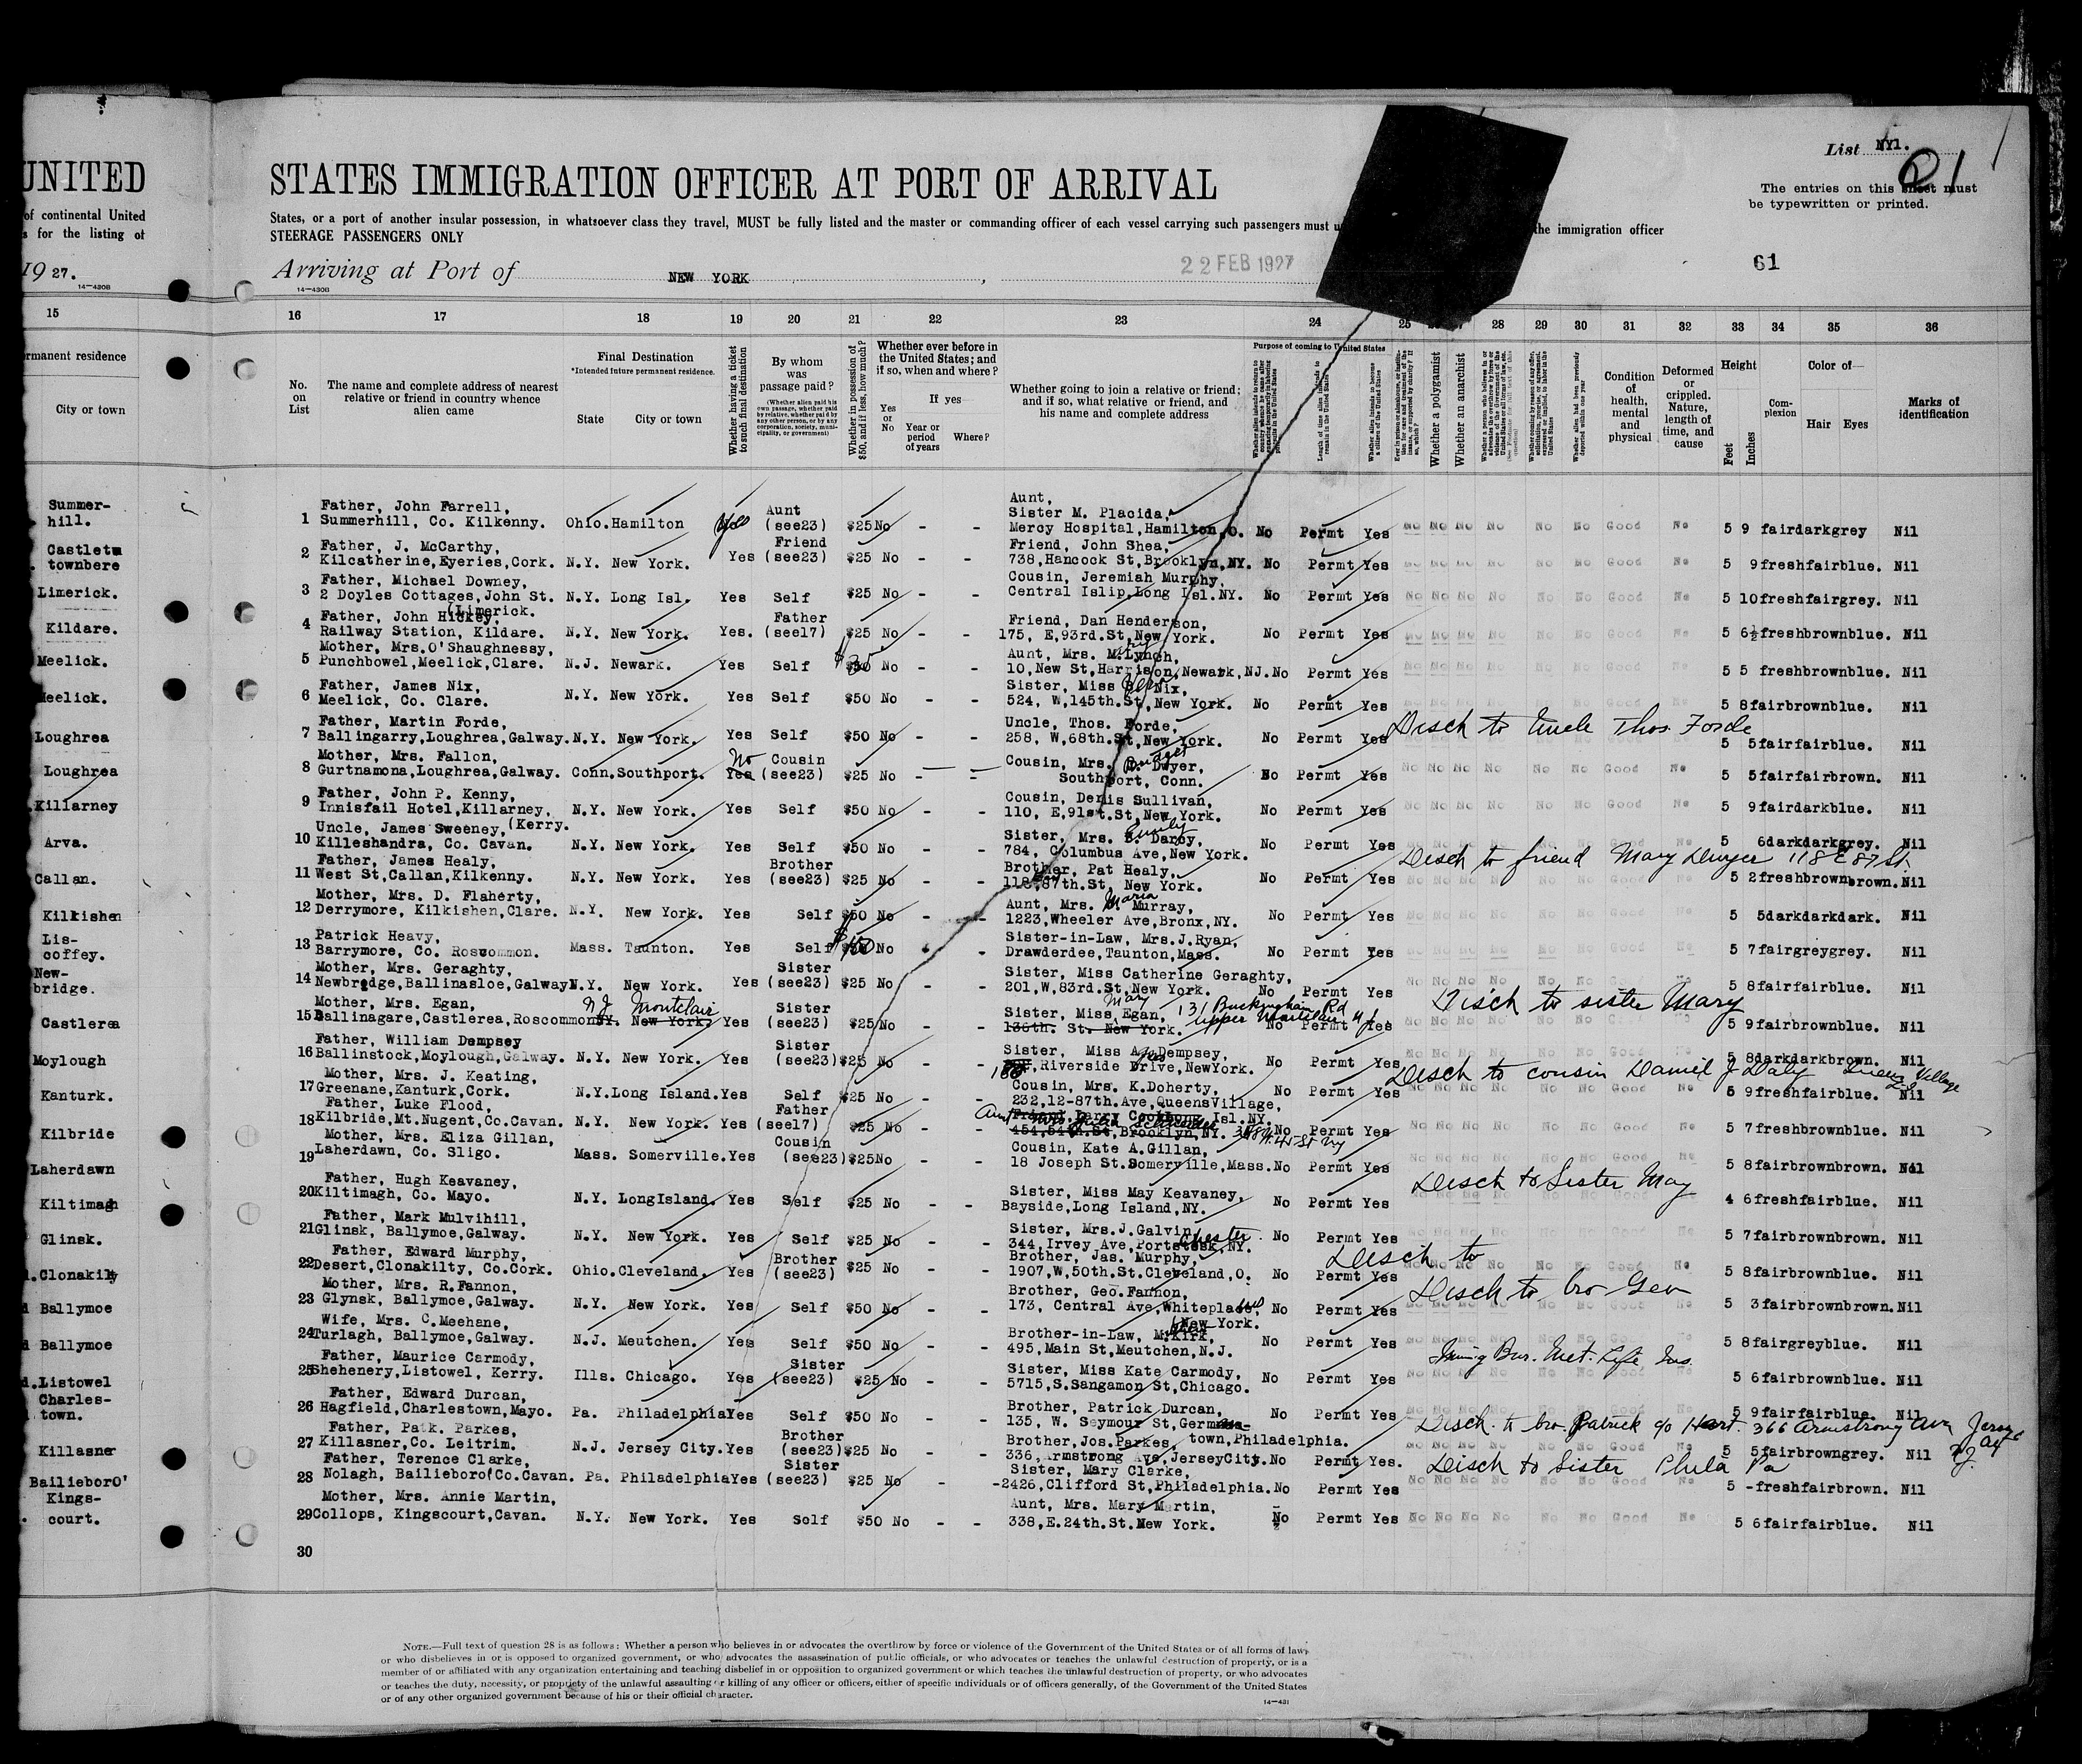 UNITED
STATES IMMIGRATION OFFICER AT PORT OF ARRIVAL
List NY1.
61
The entries on this sheet must
be typewritten or printed.
of continental United
s for the listing of
States, or a port of another insular possession, in whatsoever class they travel, MUST be fully listed and the master or commanding officer of each vessel carrying such passengers must u
the immigration officer
STEERAGE PASSENGERS ONLY
19 27.
Arriving at Port of NEW YORK,
22 FEB 1927
61
14-430B
14-430B
15 16 17 18 19 20 21 22 23 24 25 28 29 30 31 32 33 34 35 36
rmanent residence
City or town
No. on List
The name and complete address of nearest relative or friend in country whence alien came
Final Destination
*Intended future permanent residence.
State City or town
Whether having a ticket to such final destination
By whom was passage paid?
(Whether alien paid his own passage, whether paid by relative, whether paid by any other person, or by any corporation, society, municipality, or government)
Whether in possession of $50, and if less, how much?
Whether ever before in the United States; and if so, when and where?
Yes or No
If yes
Year or period of years
Where?
Whether going to join a relative or friend; and if so, what relative or friend, and his name and complete address
Purpose of coming to United States
Length of time alien intends to remain in the United States
Whether alien intends to become a citizen of the United States
Whether a polygamist
Whether an anarchist
Condition of health, mental and physical
Deformed or crippled. Nature, length of time, and cause
Height
Feet Inches
Complexion
Color of—
Hair Eyes
Marks of identification
Summerhill.
1 Father, John Farrell, Summerhill, Co. Kilkenny. Ohio. Hamilton Yes Aunt (see23) $25 No - - Aunt, Sister M. Placida, Mercy Hospital, Hamilton, O. No Permt Yes No No No No No No Good No 5 9 fair dark grey Nil
townbere
2 Father, J. McCarthy, Kilcatherine, Eyeries, Cork. N.Y. New York. Yes Friend (see23) $25 No - - Friend, John Shea, 738, Hancock St, Brooklyn, NY. No Permt Yes No No No No No No Good No 5 9 fresh fair blue. Nil
Limerick.
3 Father, Michael Downey, 2 Doyles Cottages, John St. (Limerick. N.Y. Long Isl. Yes Self $25 No - - Cousin, Jeremiah Murphy, Central Islip, Long Isl. NY. No Permt Yes No No No No No No Good No 5 10 fresh fair grey. Nil
Kildare.
4 Father, John Hickey, Railway Station, Kildare. N.Y. New York. Yes. Father (see17) $25 No - - Friend, Dan Henderson, 175, E, 93rd. St, New York. No Permt Yes No No No No No No Good No 5 6½ fresh brown blue. Nil
Meelick.
5 Mother, Mrs. O'Shaughnessy, Punchbowl, Meelick, Clare. N.J. Newark. Yes Self No - - Aunt, Mrs. M. Lynch, 10, New St, Harrison, Newark, NJ. No Permt Yes No No No No No No Good No 5 5 fresh brown blue. Nil
Meelick.
6 Father, James Nix, Meelick, Co. Clare. N.Y. New York. Yes Self $50 No - - Sister, Miss Nix, 524, W, 145th. St, New York. No Permt Yes 5 8 fair brown blue. Nil
Loughrea
7 Father, Martin Forde, Ballingarry, Loughrea, Galway. N.Y. New York. Yes Self $50 No - - Uncle, Thos. Forde, 258, W, 68th. St, New York. No Permt Yes Disch to Uncle Thos Forde 5 5 fair fair blue. Nil
Loughrea
8 Mother, Mrs. Fallon, Gurtnamona, Loughrea, Galway. Conn. Southport. No Yes Cousin (see23) $25 No - - Cousin, Mrs. Bridget Dwyer, Southport, Conn. No Permt Yes No No No No No No Good No 5 5 fair fair brown. Nil
Killarney
9 Father, John P. Kenny, Innisfail Hotel, Killarney, (Kerry. N.Y. New York. Yes Self $50 No - - Cousin, Denis Sullivan, 110, E, 91st. St, New York. No Permt Yes No No No No No No Good No 5 9 fair dark blue. Nil
Arva.
10 Uncle, James Sweeney, Killeshandra, Co. Cavan. N.Y. New York. Yes Self $50 No - - Sister, Mrs. Emily Darcy, 784, Columbus Ave, New York. No Permt Yes 5 6 dark dark grey. Nil
Callan.
11 Father, James Healy, West St, Callan, Kilkenny. N.Y. New York. Yes Brother (see23) $25 No - - Brother, Pat Healy, 118, 87th. St, New York. No Permt Yes Disch to friend Mary Dwyer 118 E 87 St. 5 2 fresh brown brown. Nil
Kilkishen
12 Mother, Mrs. D. Flaherty, Derrymore, Kilkishen, Clare. N.Y. New York. Yes Self $50 No - - Aunt, Mrs. Maria Murray, 1223, Wheeler Ave, Bronx, NY. No Permt Yes No No No No No No Good No 5 5 dark dark dark. Nil
Liscoffey.
13 Patrick Heavy, Barrymore, Co. Roscommon. Mass. Taunton. Yes Self No - Sister-in-Law, Mrs. J. Ryan, Drawderdee, Taunton, Mass. No Permt Yes No No No No No No Good No 5 7 fair grey grey. Nil
Newbridge.
14 Mother, Mrs. Geraghty, Newbridge, Ballinasloe, Galway N.Y. New York. Yes Sister (see23) $25 No - - Sister, Miss Catherine Geraghty, 201, W, 83rd. St, New York. No Permt Yes 5 8 fair fair blue. Nil
Castlerea
15 Mother, Mrs. Egan, Ballinagare, Castlerea, Roscommon NY. New York. N.J. Montclair Yes Sister (see23) $25 No - - Sister, Miss Mary Egan, 136th. St. New York. 131 Buckingham Rd upper Montclair NJ No Permt Yes Disch to sister Mary 5 9 fair brown blue. Nil
Moylough
16 Father, William Dempsey Ballinstock, Moylough, Galway. N.Y. New York. Yes Sister (see23) $25 No - - Sister, Miss A. Dempsey, Riverside Drive, New York. No Permt Yes 5 8 dark dark brown. Nil
Kanturk.
17 Mother, Mrs. J. Keating, Greenane, Kanturk, Cork. N.Y. Long Island. Yes Self $25 No - - Cousin, Mrs. K. Doherty, 232, 12-87th. Ave, Queens Village, Long Isl. NY. No Permt Yes Disch to cousin Daniel J Daly Queens Village L.I. 5 9 fresh fair blue. Nil
Kilbride
18 Father, Luke Flood, Kilbride, Mt. Nugent, Co. Cavan. N.Y. New York. Yes Father (see17) $25 No - - Aunt 454, 54th. St, Brooklyn, NY. No Permt Yes 5 7 fresh brown blue. Nil
Laherdawn
19 Mother, Mrs. Eliza Gillan, Laherdawn, Co. Sligo. Mass. Somerville. Yes Cousin (see23) $25 No - - Cousin, Kate A. Gillan, 18 Joseph St. Somerville, Mass. No Permt Yes No No No No No No Good No 5 8 fair brown brown. Nil
Kiltimagh
20 Father, Hugh Keavaney, Kiltimagh, Co. Mayo. N.Y. Long Island. Yes Self $25 No - - Sister, Miss May Keavaney, Bayside, Long Island, NY. No Permt Yes Disch to Sister May 4 6 fresh fair blue. Nil
Glinsk.
21 Father, Mark Mulvihill, Glinsk, Ballymoe, Galway. N.Y. New York. Yes Self $25 No - - Sister, Mrs. J. Galvin, 344, Irvey Ave, Port Chester, NY. No Permt Yes 5 7 fair brown brown. Nil
Clonakilty
22 Father, Edward Murphy, Desert, Clonakilty, Co. Cork. Ohio. Cleveland. Yes Brother (see23) $25 No - - Brother, Jas. Murphy, 1907, W, 50th. St. Cleveland, O. No Permt Yes Disch to 5 8 fair brown blue. Nil
Ballymoe
23 Mother, Mrs. R. Fannon, Glynsk, Ballymoe, Galway. N.Y. New York. Yes Self $50 No - - Brother, Geo. Fannon, 173, Central Ave, Whiteplains, (New York. No Permt Yes Disch to bro Geo 5 3 fair brown brown. Nil
Ballymoe
24 Wife, Mrs. C. Meehane, Turlagh, Ballymoe, Galway. N.J. Meutchen. Yes Self $50 No - - Brother-in-Law, M. Kirk, 495, Main St, Meutchen, N.J. No Permt Yes 5 8 fair grey blue. Nil
Listowel
25 Father, Maurice Carmody, Shehenery, Listowel, Kerry. Ills. Chicago. Yes Sister (see23) $25 No - - Sister, Miss Kate Carmody, 5715, S. Sangamon St, Chicago. No Permt Yes Immig Bur. Met. Life Ins. 5 6 fair brown blue. Nil
Charlestown.
26 Father, Edward Durcan, Hagfield, Charlestown, Mayo. Pa. Philadelphia Yes Self $50 No - - Brother, Patrick Durcan, 135, W. Seymour St, Germantown, Philadelphia. No Permt Yes 5 9 fair fair blue. Nil
Killasner
27 Father, Patk. Parkes, Killasner, Co. Leitrim. N.J. Jersey City. Yes Brother (see23) $25 No - - Brother, Jos. Parkes, 336, Armstrong Ave, Jersey City. No Permt Yes. Disch. to bro. Patrick c/o Hart. 366 Armstrong Ave Jersey City N.J. 5 5 fair brown grey. Nil
Bailieboro'
28 Father, Terence Clarke, Nolagh, Bailieboro' Co. Cavan. Pa. Philadelphia Yes Sister (see23) $25 No - - Sister, Mary Clarke, 2426, Clifford St, Philadelphia. No Permt Yes Disch to Sister Phila Pa 5 - fresh fair brown. Nil
Kingscourt.
29 Mother, Mrs. Annie Martin, Collops, Kingscourt, Cavan. N.Y. New York. Yes Self $50 No - - Aunt, Mrs. Mary Martin, 338, E. 24th. St. New York. No Permt Yes No No No No No No Good No 5 6 fair fair blue. Nil
30
NOTE.—Full text of question 28 is as follows: Whether a person who believes in or advocates the overthrow by force or violence of the Government of the United States or of all forms of law,
or who disbelieves in or is opposed to organized government, or who advocates the assassination of public officials, or who advocates or teaches the unlawful destruction of property, or is a
member of or affiliated with any organization entertaining and teaching disbelief in or opposition to organized government or which teaches the unlawful destruction of property, or who advocates
or teaches the duty, necessity, or propriety of the unlawful assaulting or killing of any officer or officers, either of specific individuals or of officers generally, of the Government of the United States
or of any other organized government because of his or their official character.
14-431